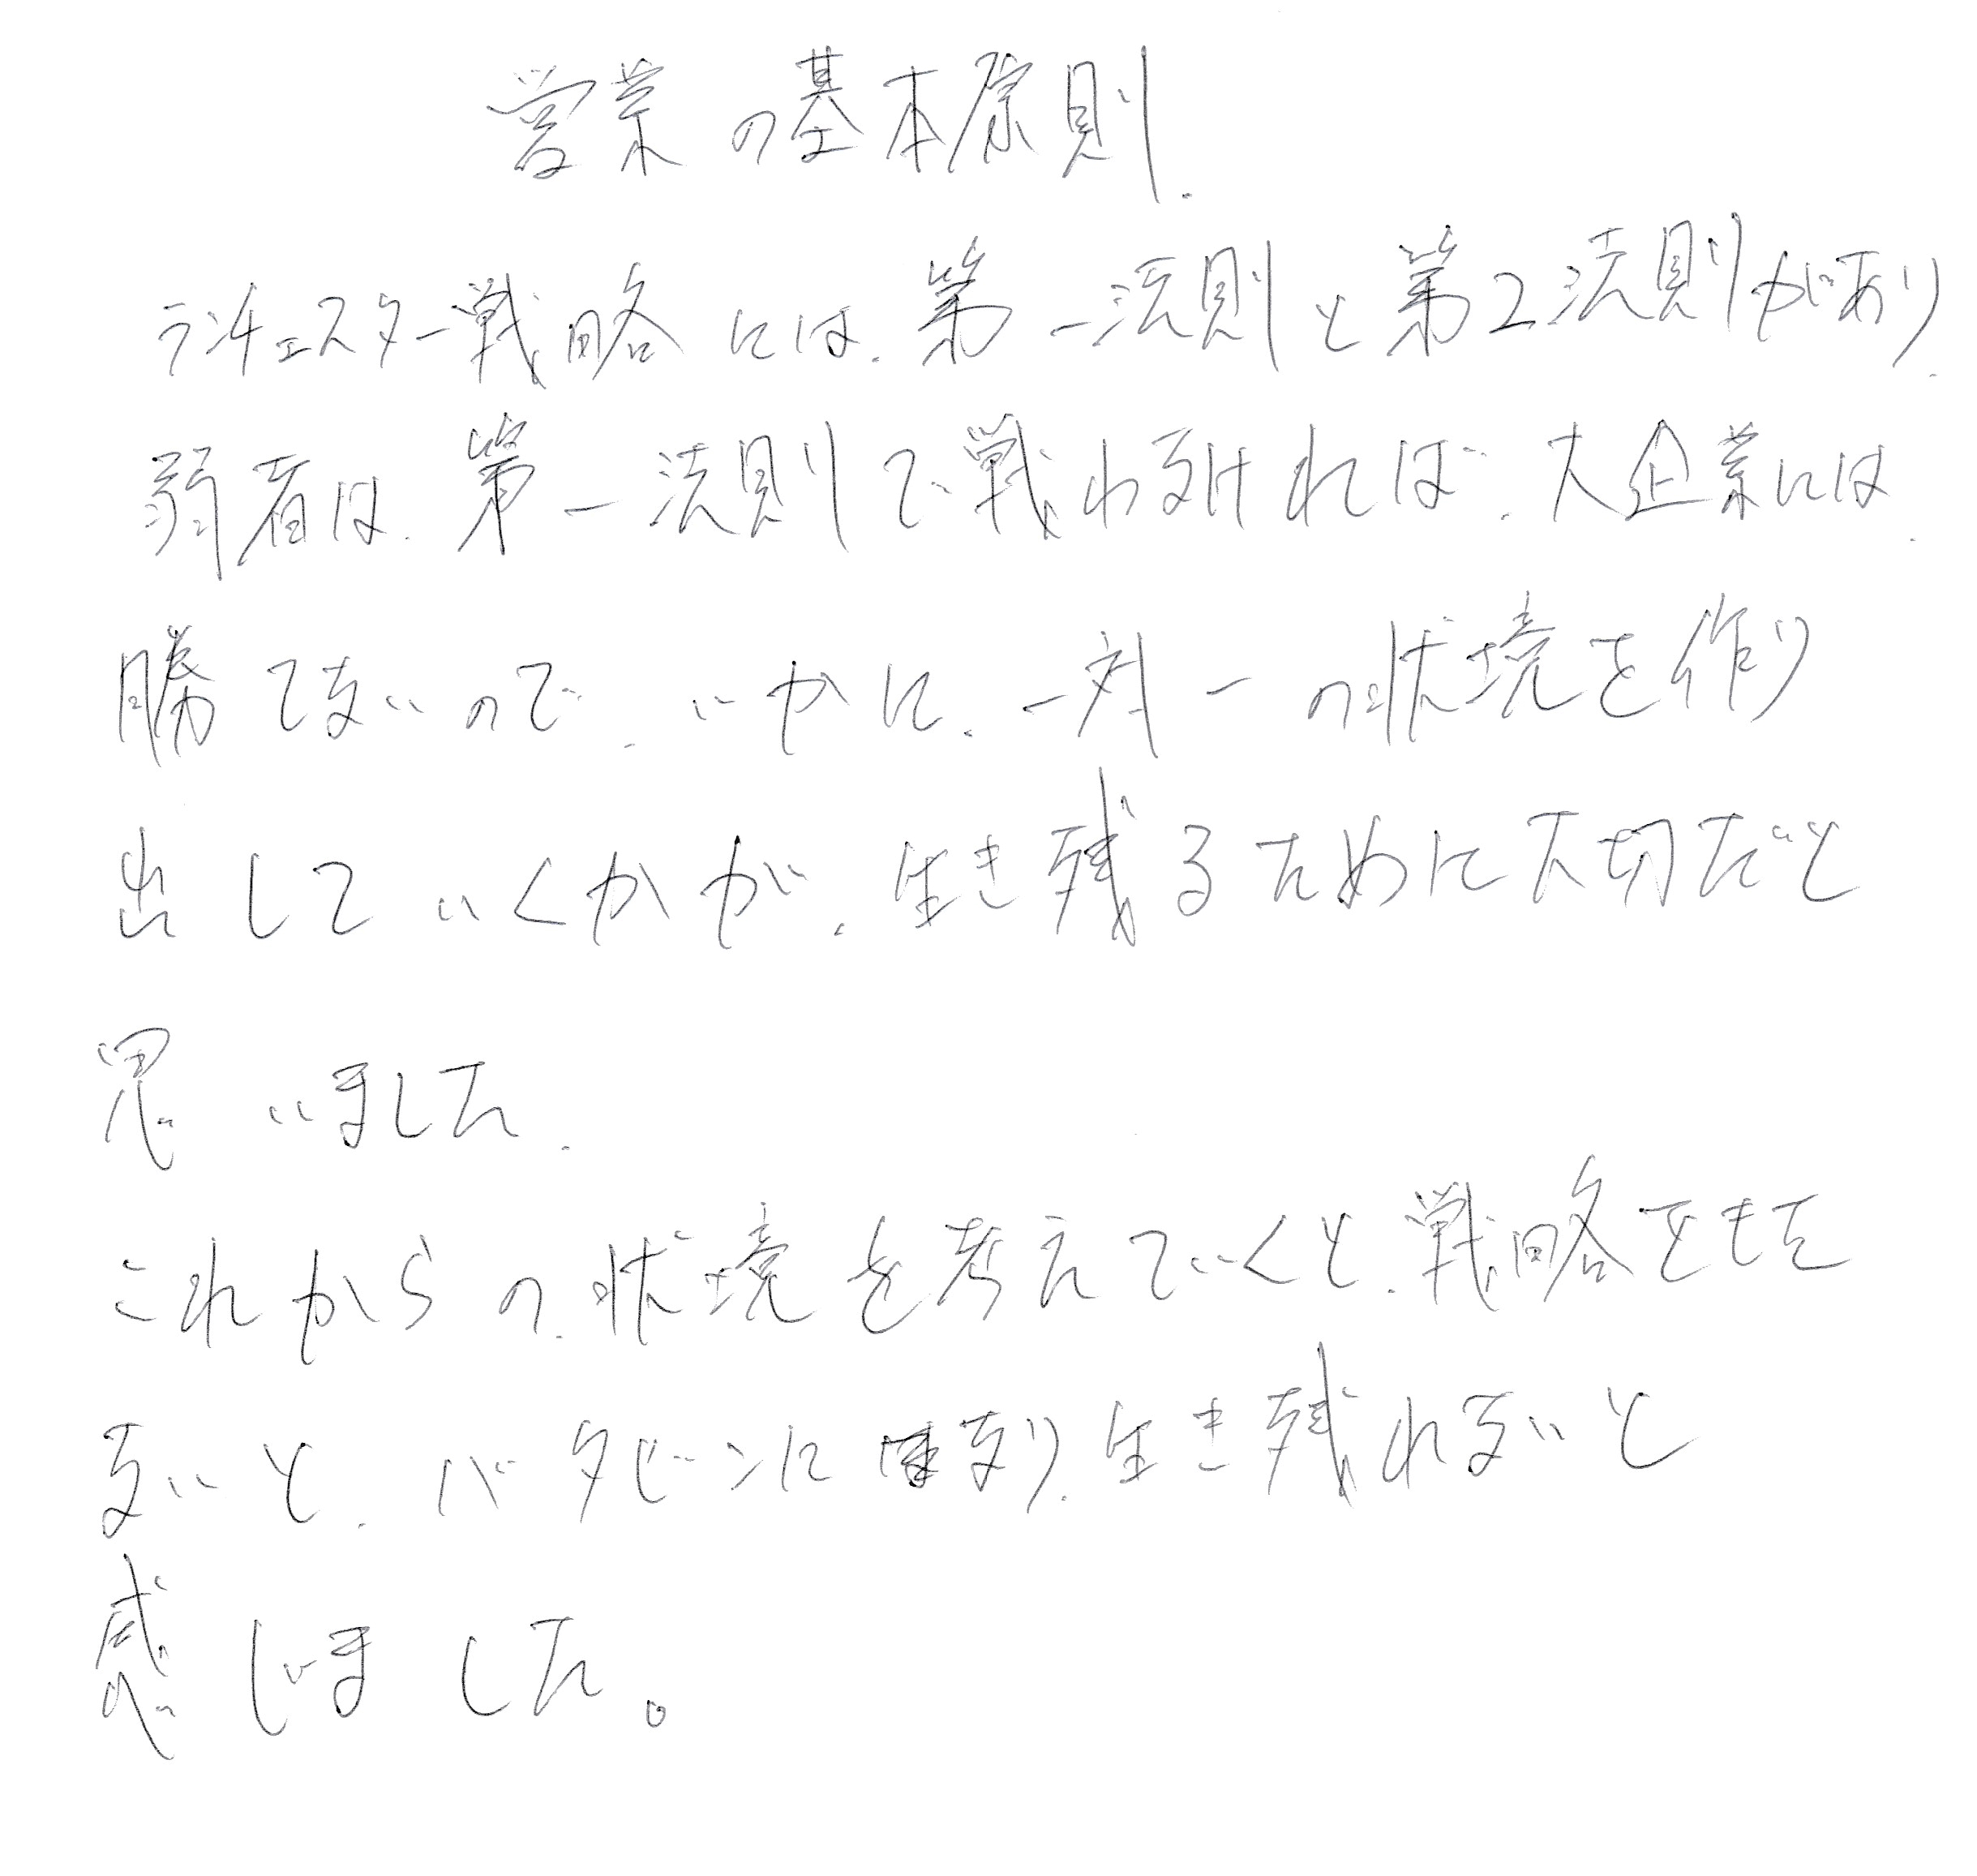 営業の基本原則.
ランチェスター戦略には、第一法則と第2法則があり、
弱者は、第一法則で戦わなければ、大企業には、
勝てないので、いかに、一対一の状境を作り
出していくかが、生き残るために大切だと
思いました。
これからの状境を考えていくと、戦略をもた
ないと、バタビンになり、生き残れないと
感じました。